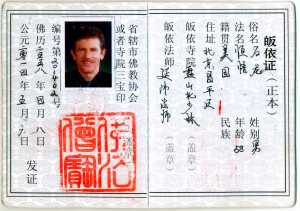 皈依证（正本）
俗名 石龙 姓别 男
法名 年龄 58
籍贯 美国 民族
住址 北京昌平区
皈依寺院 盘山北少林 （盖章）
皈依法师 法师 （盖章）
省辖市佛教协会
或者寺院三宝印
盖章
佛法僧寶
编号第 号
佛历二五五八年四月八日
公元二〇一四年五月 日
发证